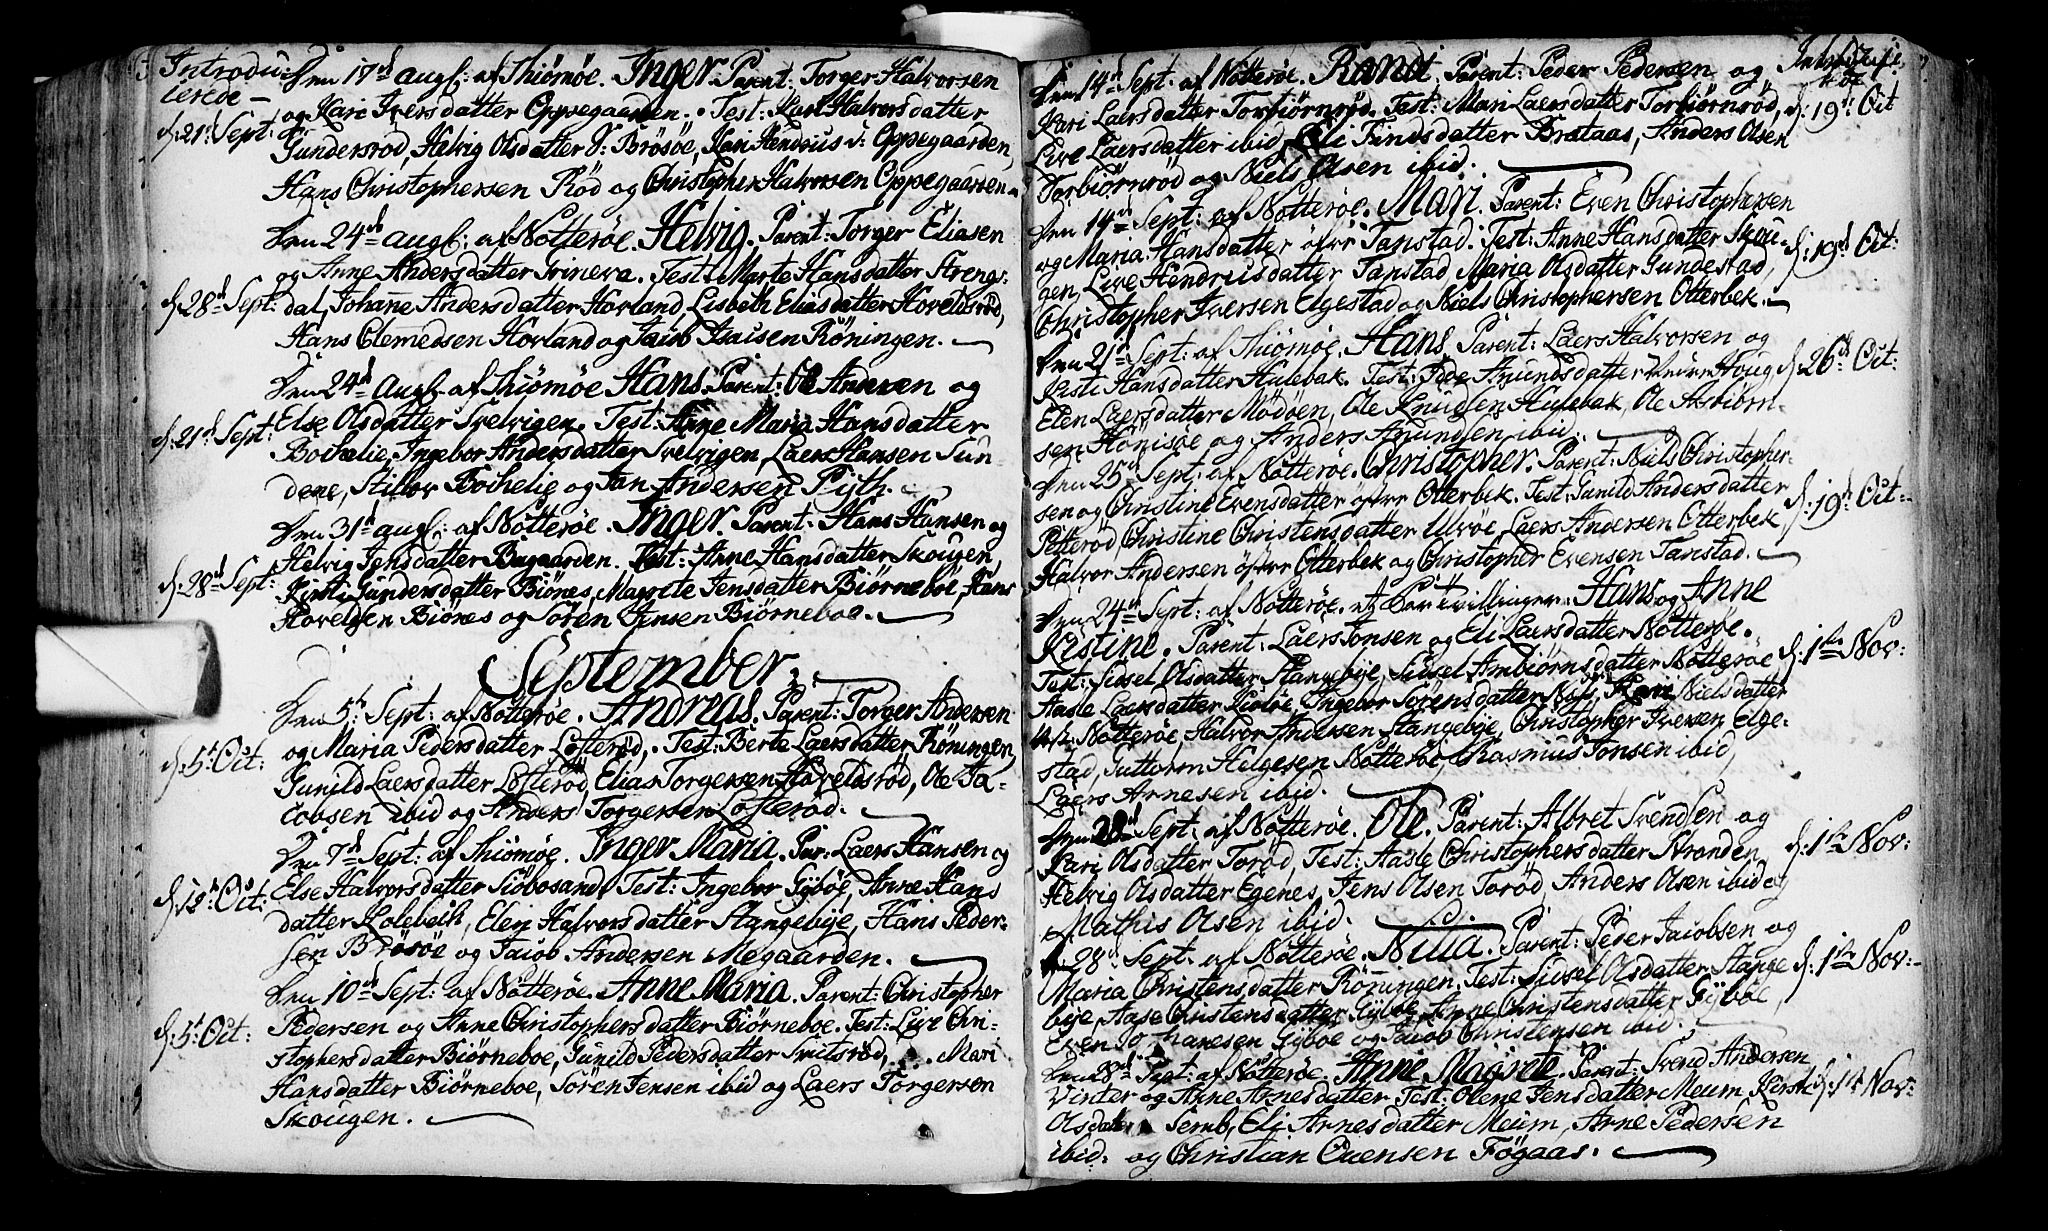 Introdu-
cerede -
Den 17d augl: af Thiömöe. Inger. Parent: Torger Halvorsen
og Kari Iversdatter Oppegaarden. Test: Kari Halvorsdatter
d: 21d Sept: Gundersrød, Helvig Olsdatter Brøsöe, Kari Hendrius Oppegaarden,
Hans Christophersen Rød og Christopher Halvorsen Oppegaarden
Den 24d augl: af Nötteröe. Helvig. Parent: Torger Eliasen
og Anne Andersdatter Trineva. Test: Marte Hansdatter Streng-
d: 28d Sept: dal, Johanne Andersdatter Horland, Lisbeth Eliasdatter Hovelsrød,
Hans Clemedsen Horland og Jacob Isacsen Röningen.
Den 24d augl: af Thiömöe Hans. Parent: Ole Andersen og
d: 21d Sept: Else Olsdatter Svelvigen. Test: Anne Maria Hansdatter
Boihelie, Ingebor Andersdatter Svelvigen, Laers Hansen Sun-
dene, Boihelie og Jan Andersen Pijth.
Den 31d augl: af Nötteröe. Inger. Parent: Hans Hansen og
Helvig Jensdatter Bugaarden. Test: Anne Hansdatter Skougen,
d: 28d Sept: Kirsti Gundersdatter Biönes, Magrete Jensdatter Biörneboe, Hans
Hovelsen Biönes og Sören Jensen Biörneboe.
September.
Den 5t Sept: af Nötteröe. Andreas. Parent: Torger Andersen
d: 5t Oct: og Maria Pedersdatter Löfteröd. Test: Berte Laersdatter Röningen,
Gunild Laersdatter Löfteröd, Elias Torgersen Hovelsröd, Ole Ja-
cobsen ibid og Anders Torgersen Löfteröd.
Den 7d Sept: af Thiömöe. Inger Maria. Par: Laers Hansen og
d: 12t Oct: Else Halvorsdatter Siöbosand. Test: Ingebor Gyböe, Anne Hans
datter Kolebeik, Elen Halvorsdatter Stangebye, Hans Peder-
sen Brösöe og Jacob Andersen Megaarden.
Den 10d Sept: af Nötteröe. Anne Maria. Parent: Christopher
d: 5t Oct: Pedersen og Anne Christophersdatter Biörneboe. Test: Live Chri-
stophersdatter Biörneboe, Gunild Pedersdatter Smitsröd, Mari
Hansdatter Biörneboe, Sören Jensen ibid og Laers Torgersen
Skougen.
Den 14d Sept: af Nötteröe. Randi. Parent: Peder Pedersen og
Kari Laersdatter Torbiörnröd. Test: Mari Laersdatter Torbiörnröd, d: 19d Oct
Live Laersdatter ibid, Eli Findsdatter Brataas, Anders Olsen
Torbiörnröd og Niels Olsen ibid.
Den 14d Sept: af Nötteröe. Mari. Parent: Even Christophersen
og Maria Hansdatter öfre Tanstad. Test: Anne Hansdatter Skou- d: 19d Oct:
gen, Live Hendriisdatter Tanstad, Maria Olsdatter Gundestad,
Christopher Iversen Elgestad og Niels Christophersen Otterbek.
Den 21d Sept: af Thiömöe. Hans. Parent: Laers Halvorsen og
Kirsti Hansdatter Hulebak. Test: Amundsdatter Houg, d: 26d Oct:
Elen Laersdatter Mödöen, Ole Knudsen Hulebak, Ole Asbiörn-
sen Hönisöe og Anders Anundsen ibid.
Den 25d Sept: af Nötteröe. Christopher. Parent: Niels Christopher-
sen og Christine Evensdatter öfre Otterbek. Test: Gunild Andersdatter d: 19d Oct:
Petteröd, Christine Christensdatter Ulvöe, Laers Andersen Otterbek
Halvor Andersen öfre Otterbek og Christopher Evensen Tanstad.
Den 24d Sept: af Nötteröe. et Par tvillinger: Hans og Anne
Kistine. Parent: Laers Jonsen og Eli Laersdatter Nötteröe. d: 1ste Nov:
Test: Sidsel Olsdatter Stangebije, Sidsel Ambiörnsdatter Nötteröe
Aasle Laersdatter Kiölöe, Ingebor Sörensdatter Näs, Kari Nielsdatter
Nötteröe, Halvor Andersen Stangebije, Christopher Iversen Elge-
stad, Guttorm Helgesen Nötteröe, Rasmus Jonsen ibid,
Laers Arnesen ibid.
Den 28d Sept: af Nötteröe. Ole. Parent: Albret Svendsen og
Kari Olsdatter Toröd, Test: Aasle Christophersdatter Stranden, d: 1ste Nov:
Helvig Olsdatter Egenes, Jens Olsen Toröd, Anders Olsen ibid og
Mathis Olsen ibid.
28d Sept: af Nötteröe. Nilia. Parent: Peder Jacobsen og
Maria Christensdatter Röningen. Test: Sidsel Olsdatter Stange d: 1ste Nov:
bije, Aase Christensdatter Gyböe, Anne Christensdatter Gyböe
Even Johannesen Gyböe og Jacob Christensen ibid.
Den 28d Sept: af Nötteröe. Anne Magrete. Parent: Svend Andersen
Vinter og Anne Arnesdatter. Test: Olene Jensdatter Meum, Kirsti d: 14 Nov:
Olsdatter Semb, Eli Arnesdatter Meum, Arne Pedersen
ibid: og Christian Evensen Fögaas.